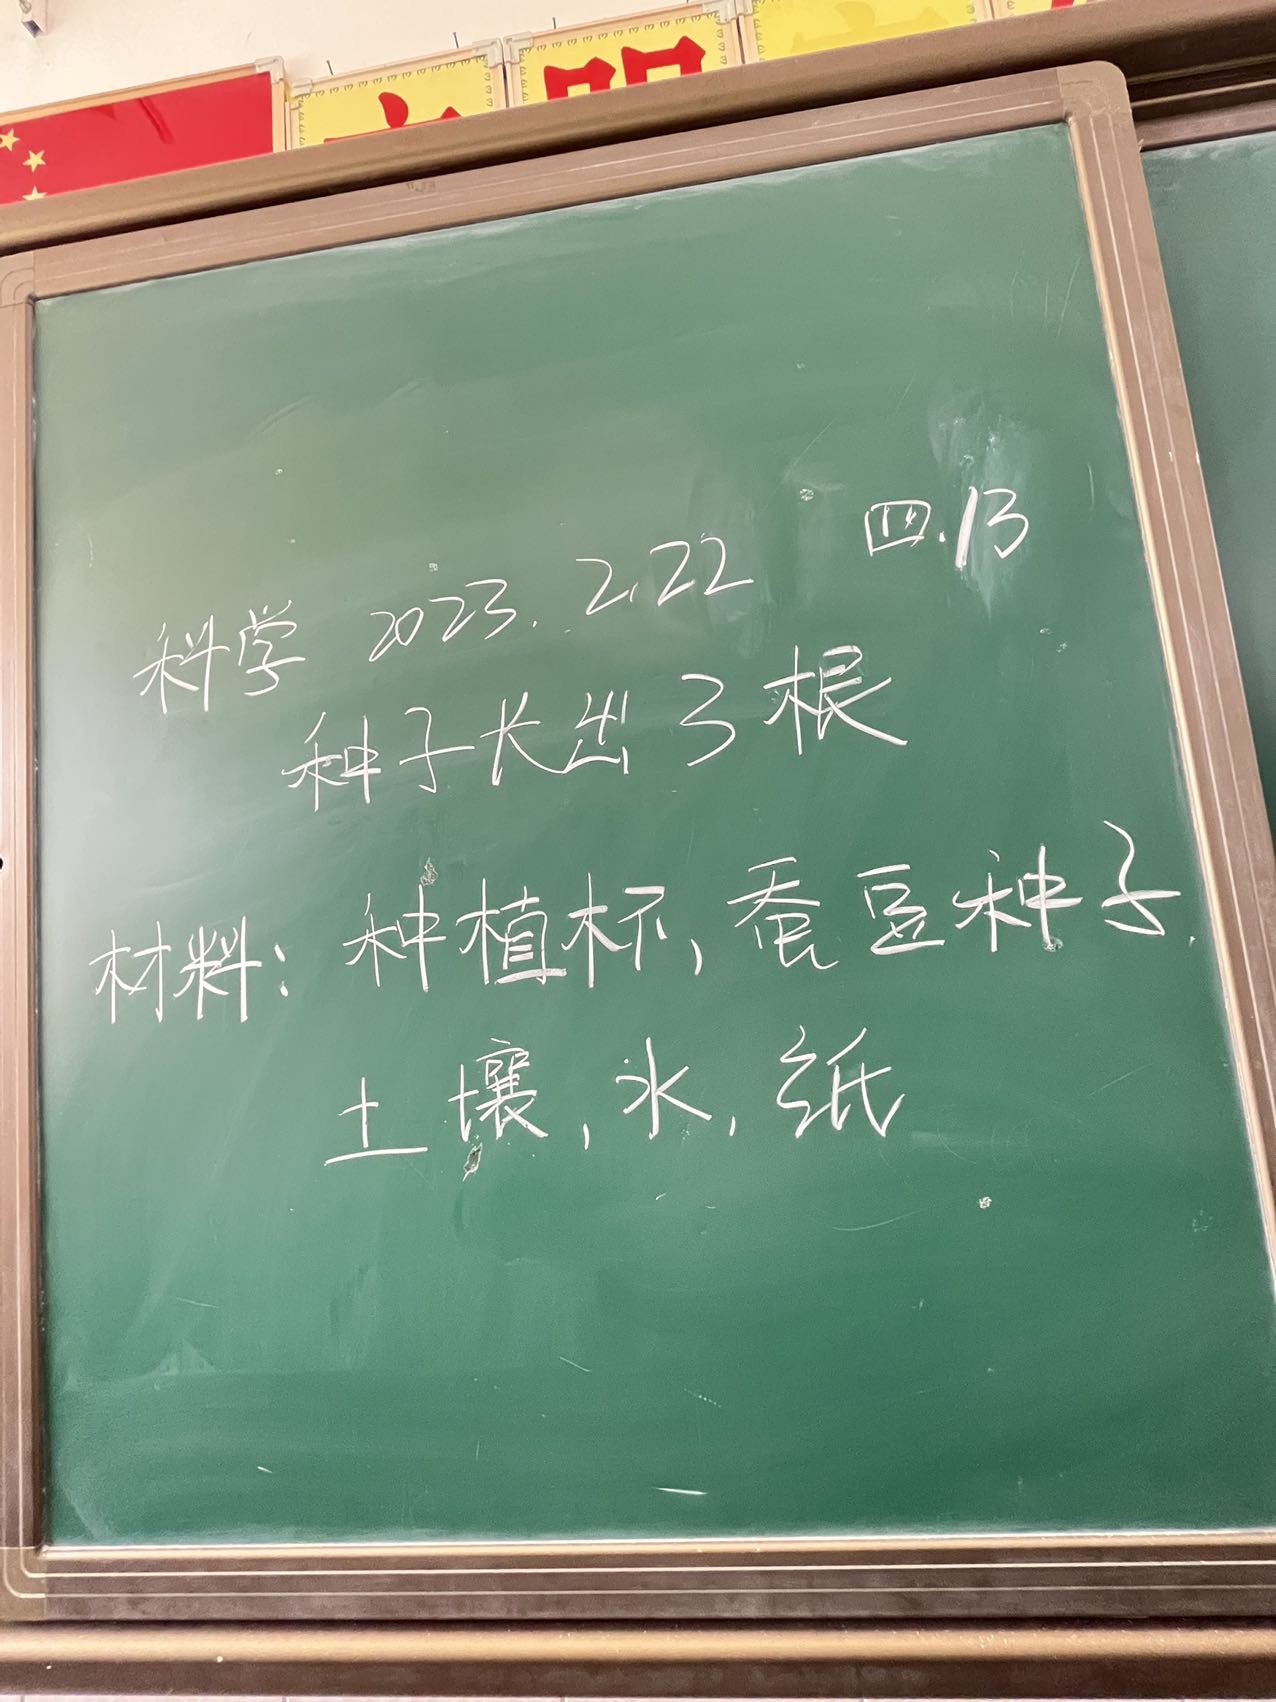 科学 2023.2.22 四.13
种子长出了根
材料：种植杯,蚕豆种子,
土壤,水,纸